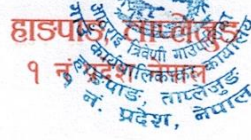 हाङपाङ, ताप्लेजुङ
१ नं. प्रदेश, नेपाल
त्रिवेणी गाउँपालिका
कार्यपालिकाको कार्यालय
हाङपाङ, ताप्लेजुङ
१ नं. प्रदेश, नेपाल